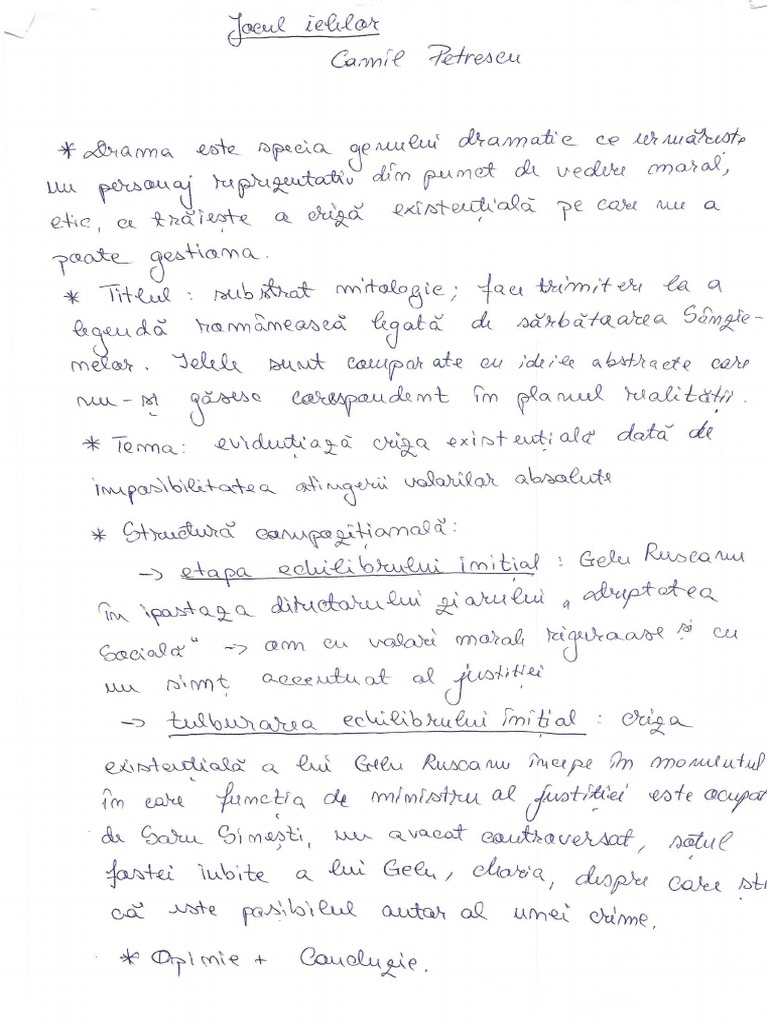 Jocul ielelor
Camil Petrescu
* Drama este specia genului dramatic ce urmărește
un personaj reprezentativ din punct de vedere moral,
etic, ce trăiește o criză existențială pe care nu o
poate gestiona.
* Titlul: substrat mitologic; face trimitere la o
legendă românească legată de sărbătoarea Sânzie-
nelor. Ielele sunt comparate cu ideile abstracte care
nu-și găsesc corespondent în planul realității.
* Tema: evidențiază criza existențială dată de
imposibilitatea atingerii valorilor absolute
* Structură compozițională:
-> etapa echilibrului inițial: Gelu Ruscanu
în ipostaza directorului ziarului „Dreptatea
Socială" -> om cu valori morale riguroase și cu
un simț accentuat al justiției
-> tulburarea echilibrului inițial: criza
existențială a lui Gelu Ruscanu începe în momentul
în care funcția de ministru al justiției este ocupat
de Saru Sinești, un avocat controversat, soțul
fostei iubite a lui Gelu, Maria, despre care ști
că este posibilul autor al unei crime.
* Opinie + Concluzie.